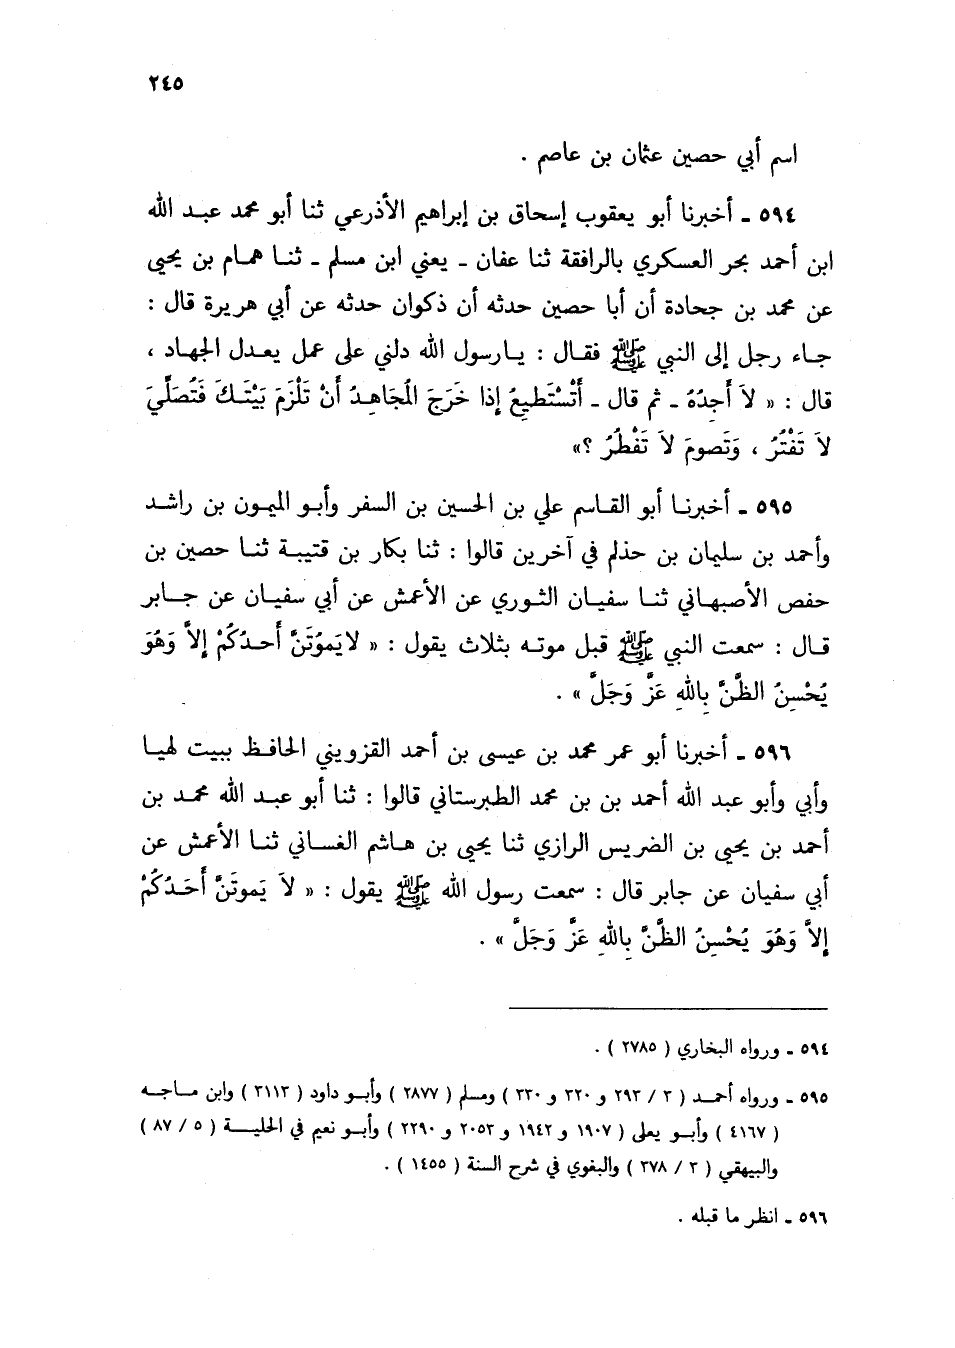 ٢٤٥
اسم أبي حصين عثمان بن عاصم .
٥٩٤ ـ أخبرنا أبو يعقوب إسحاق بن إبراهيم الأذرعي ثنا أبو محمد عبد الله
ابن أحمد بحر العسكري بالرافقة ثنا عفان ـ يعني ابن مسلم ـ ثنا همام بن يحيى
عن محمد بن جحادة أن أبا حصين حدثه أن ذكوان حدثه عن أبي هريرة قال :
جاء رجل إلى النبي ﷺ فقال : يارسول الله دلني على عمل يعدل الجهاد ،
قال : « لاَ أَجِدُهُ ـ ثم قال ـ أَتَسْتَطِيعُ إذا خَرَجَ الُمجَاهِدُ أنْ تَلْزَمَ بَيْتَكَ فَتُصَلَّيَ
لاَ تَفْتُرُ ، وَتَصومَ لاَ تَفْطُرُ ؟»
٥٩٥ ـ أخبرنا أبو القاسم علي بن الحسين بن السفر وأبو الميمون بن راشد
وأحمد بن سليمان بن حذلم في آخرين قالوا : ثنا بكار بن قتيبة ثنا حصين بن
حفص الأصبهاني ثنا سفيان الثوري عن الأعمش عن أبي سفيان عن جابر
قال : سمعت النبي ﷺ قبل موته بثلاث يقول : « لايَمُوتَنَّ أَحدُكُمْ إلاَّ وَهُوَ
يُحْسِنُ الظَّنَّ بِاللهِ عَزَّ وَجَلَّ » .
٥٩٦ ـ أخبرنا أبو عمر محمد بن عيسى بن أحمد القزويني الحافظ ببيت لهيا
وأبي وأبو عبد الله أحمد بن بن محمد الطبرستاني قالوا : ثنا أبو عبد الله محمد بن
أحمد بن يحيى بن الضريس الرازي ثنا يحيى بن هاشم الغساني ثنا الأعمش عن
أبي سفيان عن جابر قال : سمعت رسول الله ﷺ يقول : « لاَ يَموتَنَّ أَحَدُكُمْ
إلاَّ وَهُوَ يُحْسِنُ الظَّنَّ بِاللهِ عَزَّ وَجَلَّ » .
٥٩٤ ـ ورواه البخاري ( ٢٧٨٥ ) .
٥٩٥ ـ ورواه أحمد ( ٣ / ٢٩٣ و ٣٢٠ و ٣٣٠ ) ومسلم ( ٢٨٧٧ ) وأبو داود ( ٣١١٣ ) وابن ماجه
( ٤١٦٧ ) وأبو يعلى ( ١٩٠٧ و ١٩٤٢ و ٢٠٥٣ و ٢٢٩٠ ) وأبو نعيم في الحلية ( ٥ / ٨٧ )
والبيهقي ( ٣ / ٣٧٨ ) والبغوي في شرح السنة ( ١٤٥٥ ) .
٥٩٦ ـ انظر ما قبله .